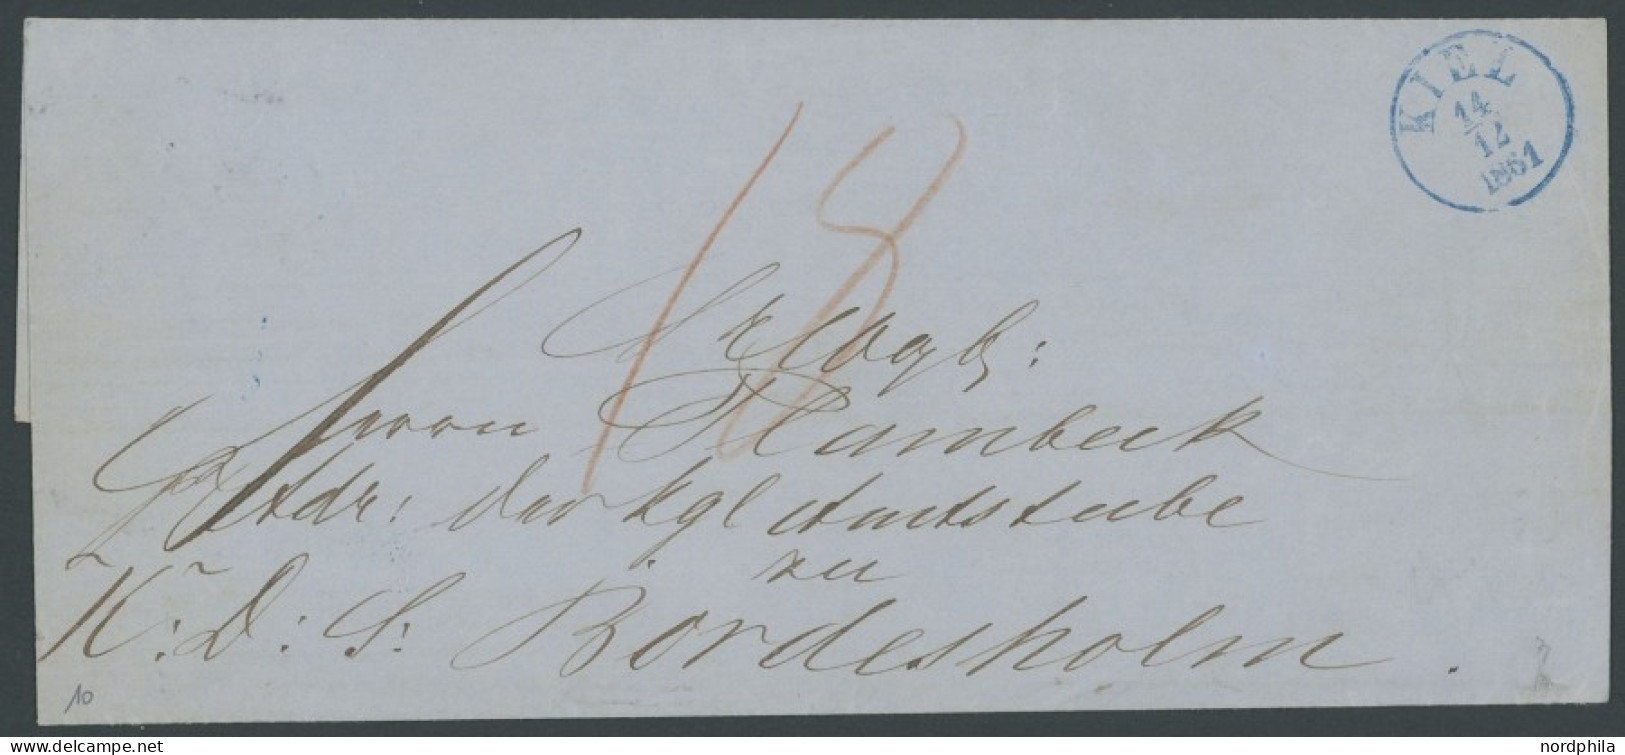 KIEL
14
12
1861
18
Sr Wgb:
Herrn Hambeck
Adr: der kgl Amtstube
zu
K: D: S: Bordesholm.
10
nordphila